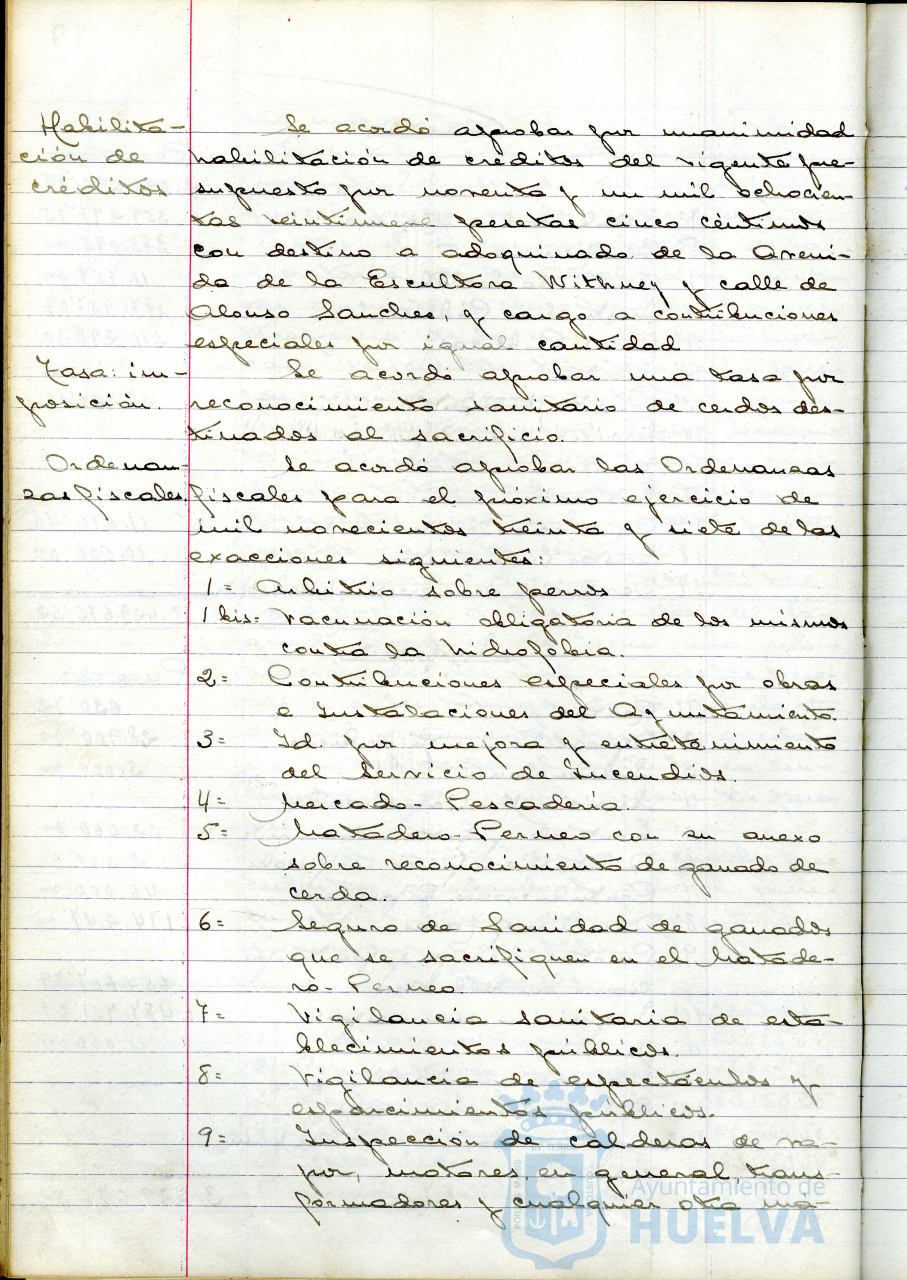 Habilita-
ción de
créditos
Se acordó aprobar por unanimidad
habilitación de créditos del vigente pre-
supuesto por noventa y un mil ochocien-
tas veintinueve pesetas cinco céntimos
con destino a adoquinado de la Aveni-
da de la Escultora Withney y calle de
Alonso Sanches, y cargo a contribuciones
especiales por igual cantidad
Tasa: im-
posición.
Se acordó aprobar una tasa por
reconocimiento sanitario de cerdos des-
tinados al sacrificio.
Ordenan-
zas fiscales.
Se acordó aprobar las Ordenanzas
fiscales para el próximo ejercicio de
mil novecientos treinta y siete de las
exacciones siguientes:
1= Arbitrio sobre perros
1 bis= Vacunación obligatoria de los mismos
contra la hidrofobia.
2= Contribuciones especiales por obras
e Instalaciones del Ayuntamiento.
3= Id. por mejora y entretenimiento
del Servicio de Incendios.
4= Mercado-Pescadería.
5= Matadero-Perneo con su anexo
sobre reconocimiento de ganado de
cerda.
6= Seguro de Sanidad de ganados
que se sacrifiquen en el Matade-
ro-Perneo.
7= Vigilancia sanitaria de esta-
blecimientos públicos.
8= Vigilancia de espectáculos y
esparcimientos públicos.
9= Inspección de calderas de va-
por, motores en general, trans-
formadores y cualquier otra má-
Ayuntamiento de
HUELVA